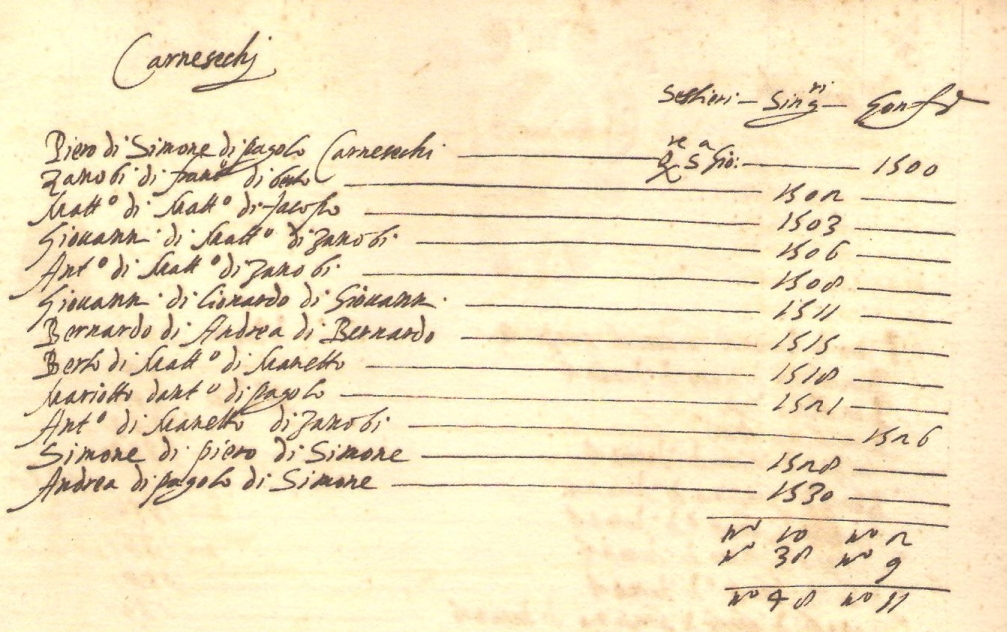 Carnesechi
Sestieri - Sing.ri - Gonf.
Piero di Simone di pagolo Carnesechi S Gio: 1500
Zanobi di fran.co di berto 1502
Matt.o di Matt.o di Jacopo 1503
Giovann. di Matt.o di Zanobi 1506
Ant.o di Matt.o di Zanobi 1508
Giovann. di lionardo di Giovann. 1511
Bernardo di Andrea di Bernardo 1515
Berto di Matt.o di Manetto 1518
Mariotto dant.o di pagolo 1521
Ant.o di Manetto di Zanobi 1526
Simone di piero di Simone 1528
Andrea di pagolo di Simone 1530
n.o 10 n.o 2
n.o 38 n.o 9
n.o 48 n.o 11